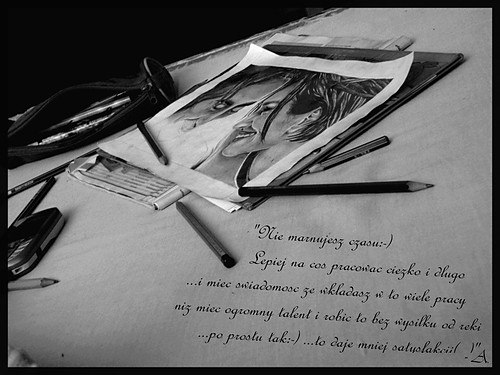 "Nie marnujesz czasu:-)
Lepiej na cos pracowac ciezko i dlugo
...i miec swiadomosc ze wkladasz w to wiele pracy
niz miec ogromny talent i robic to bez wysilku od reki
...po prostu tak:-) ...to daje mniej satysfakcji( )"
-A